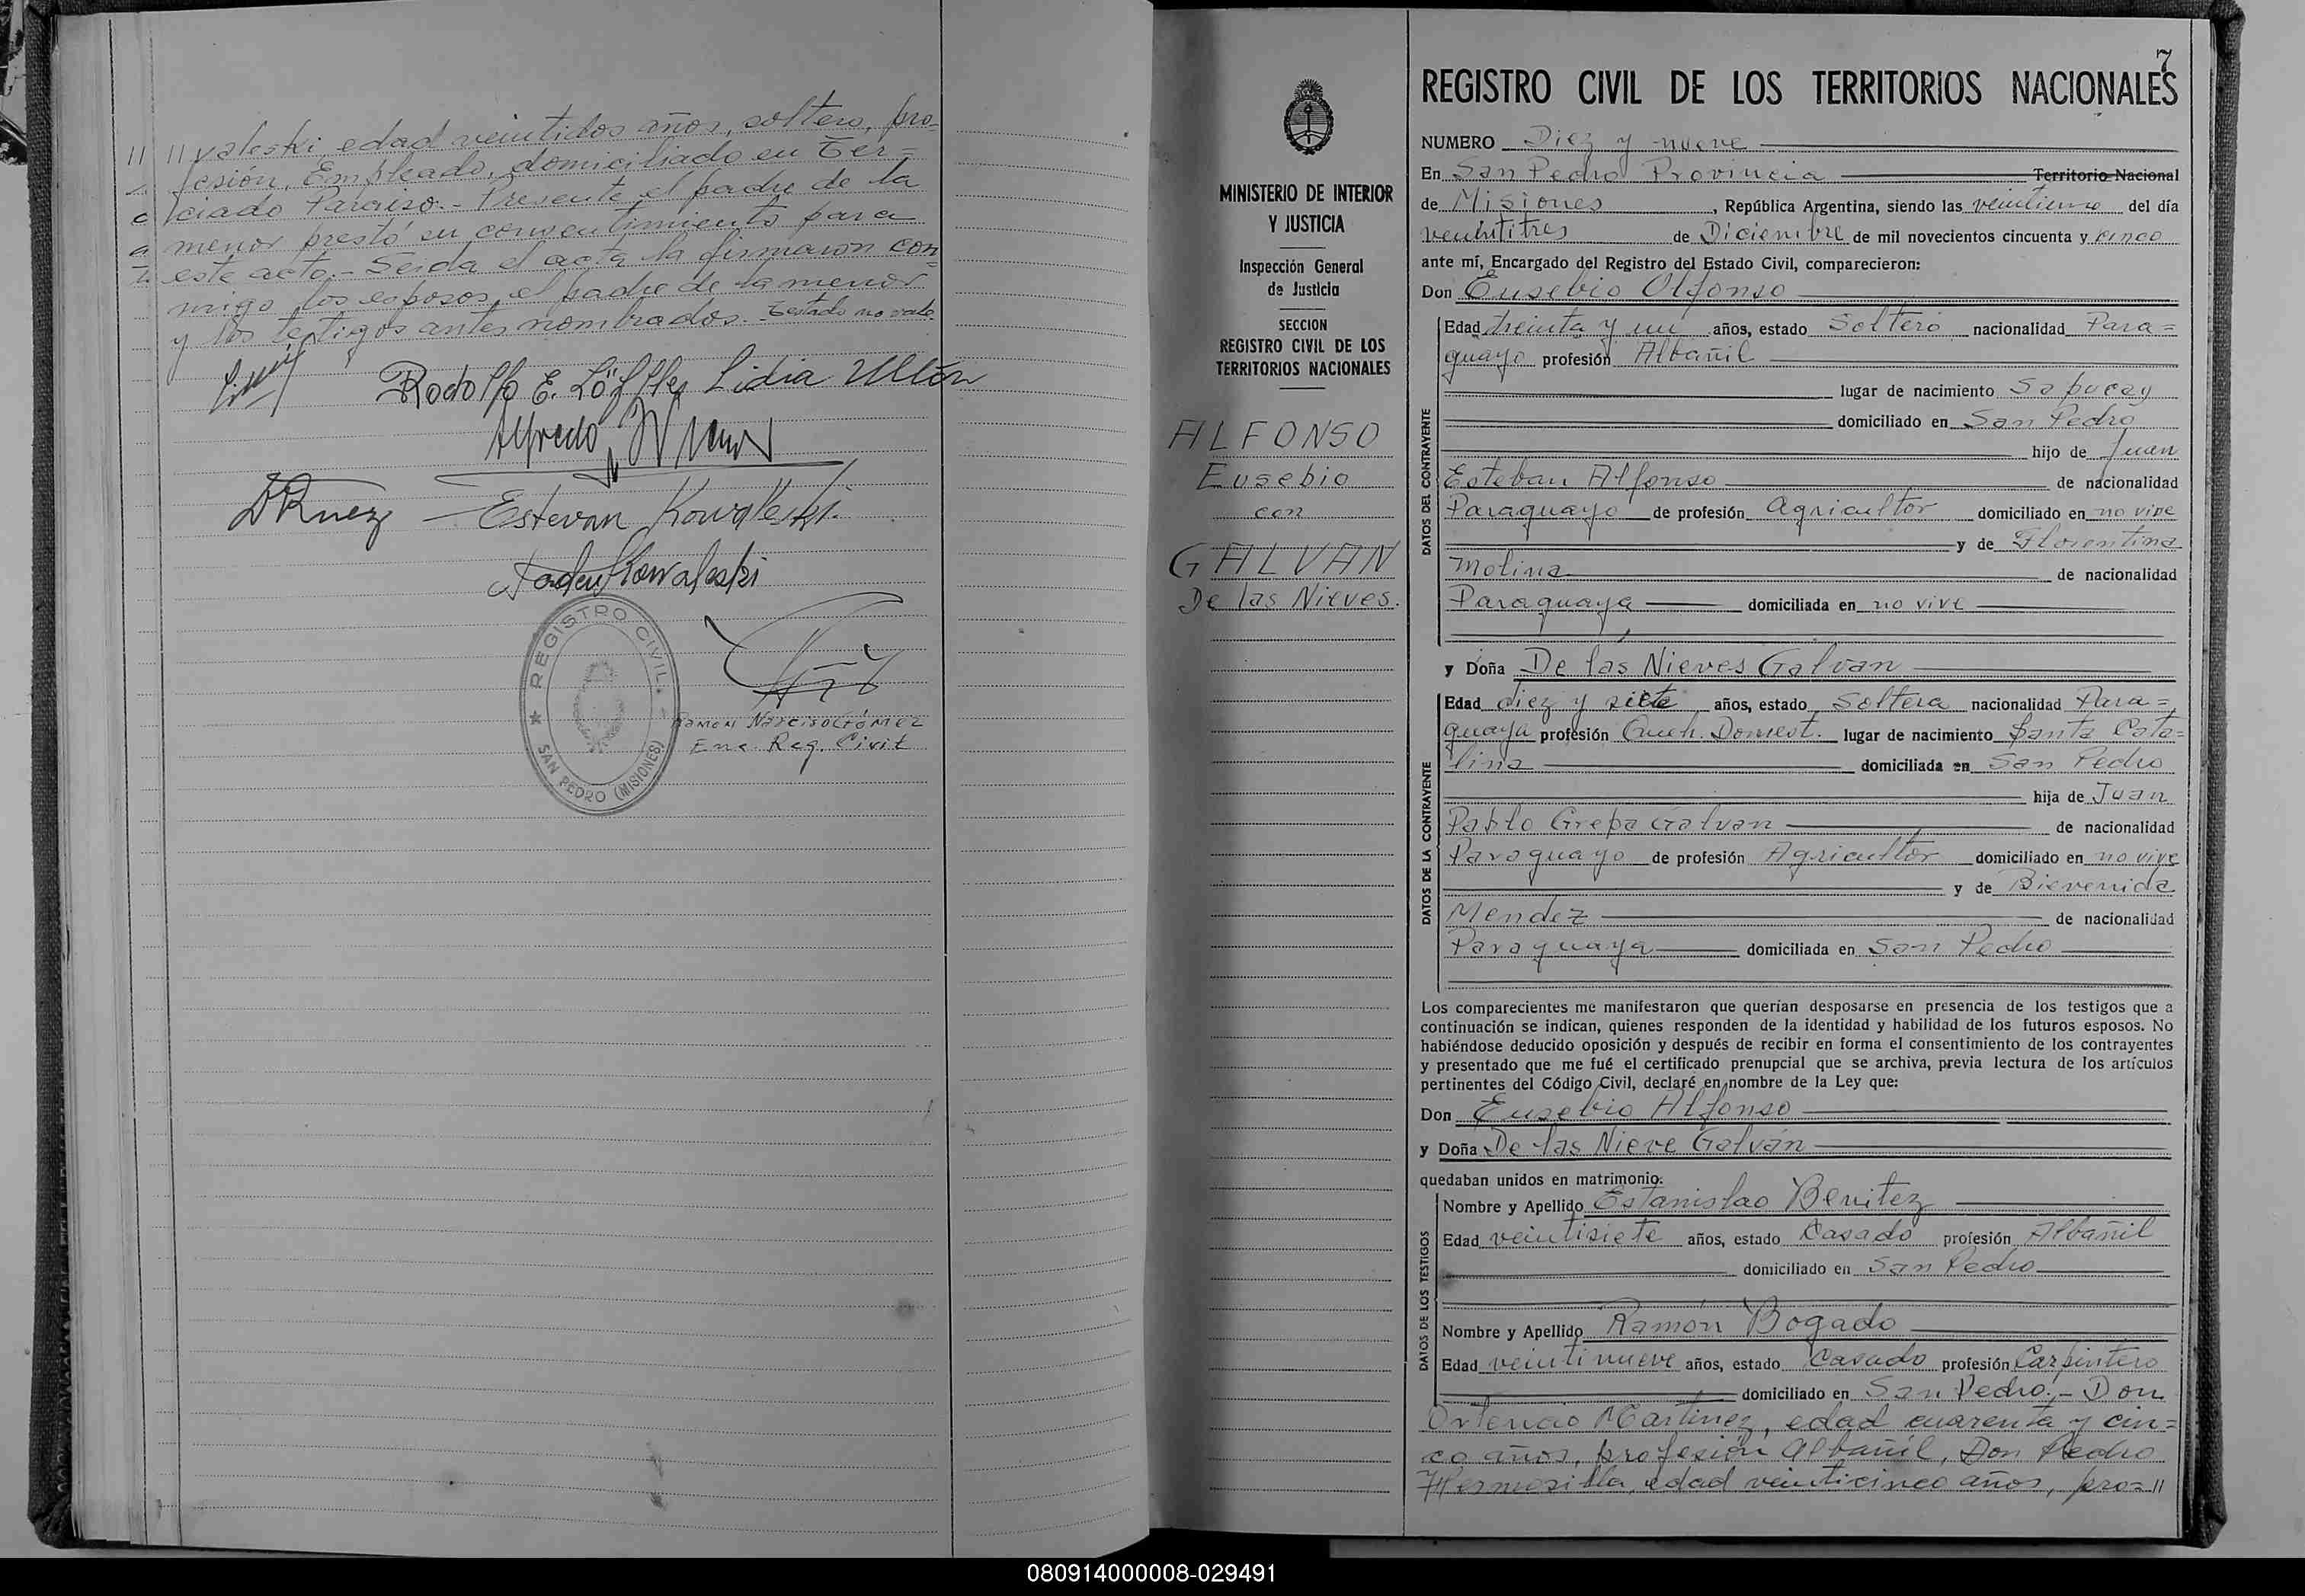 // //valeski edad veintidos años, soltero, pro-
fesión, Empleado, domiciliado en Ter=
ciado Paraiso.- Presente el padre de la
menor prestó su consentimiento para
este acto.- Leida el acta la firmaron con=
migo los esposos, el padre de la menor
y los testigos antes nombrados.- Testado no vale.
Rodolfo E. Löffler Lidia Ullón
Alfredo
Estevan Kowaleski.
Tadeu Kowaleski
★ REGISTRO CIVIL
SAN PEDRO (MISIONES)
RAMON NARCISO GÓMEZ
Enc. Reg. Civil
MINISTERIO DE INTERIOR
Y JUSTICIA
Inspección General
de Justicia
SECCION
REGISTRO CIVIL DE LOS
TERRITORIOS NACIONALES
ALFONSO
Eusebio
con
GALVAN
De las Nieves.
7
REGISTRO CIVIL DE LOS TERRITORIOS NACIONALES
NUMERO Diez y nueve
En San Pedro Provincia Territorio Nacional
de Misiones, República Argentina, siendo las veintiuna del día
veintitres de Diciembre de mil novecientos cincuenta y cinco
ante mí, Encargado del Registro del Estado Civil, comparecieron:
Don Eusebio Alfonso
DATOS DEL CONTRAYENTE
Edad treinta y un años, estado Soltero nacionalidad Para=
guayo profesión Albañil
lugar de nacimiento Sapucay
domiciliado en San Pedro
hijo de Juan
Esteban Alfonso de nacionalidad
Paraguayo de profesión Agricultor domiciliado en no vive
y de Florentina
Molina de nacionalidad
Paraguaya domiciliada en no vive
y Doña De las Nieves Galvan
DATOS DE LA CONTRAYENTE
Edad diez y siete años, estado Soltera nacionalidad Para=
guaya profesión Queh. Domest. lugar de nacimiento Santa Cata=
lina domiciliada en San Pedro
hija de Juan
Pablo Grepa Galvan de nacionalidad
Paraguayo de profesión Agricultor domiciliado en no vive
y de Bievenida
Mendez de nacionalidad
Paraguaya domiciliada en San Pedro
Los comparecientes me manifestaron que querían desposarse en presencia de los testigos que a
continuación se indican, quienes responden de la identidad y habilidad de los futuros esposos. No
habiéndose deducido oposición y después de recibir en forma el consentimiento de los contrayentes
y presentado que me fué el certificado prenupcial que se archiva, previa lectura de los artículos
pertinentes del Código Civil, declaré en nombre de la Ley que:
Don Eusebio Alfonso
y Doña De las Nieve Galván
quedaban unidos en matrimonio.
DATOS DE LOS TESTIGOS
Nombre y Apellido Estanislao Benitez
Edad veintisiete años, estado Casado profesión Albañil
domiciliado en San Pedro
Nombre y Apellido Ramón Bogado
Edad veintinueve años, estado Casado profesión Carpintero
domiciliado en San Pedro.- Don
Ortencio Martinez, edad cuarenta y cin=
co años, profesión Albañil, Don Pedro
Hermosilla, edad veinticinco años, pro=//
080914000008-029491